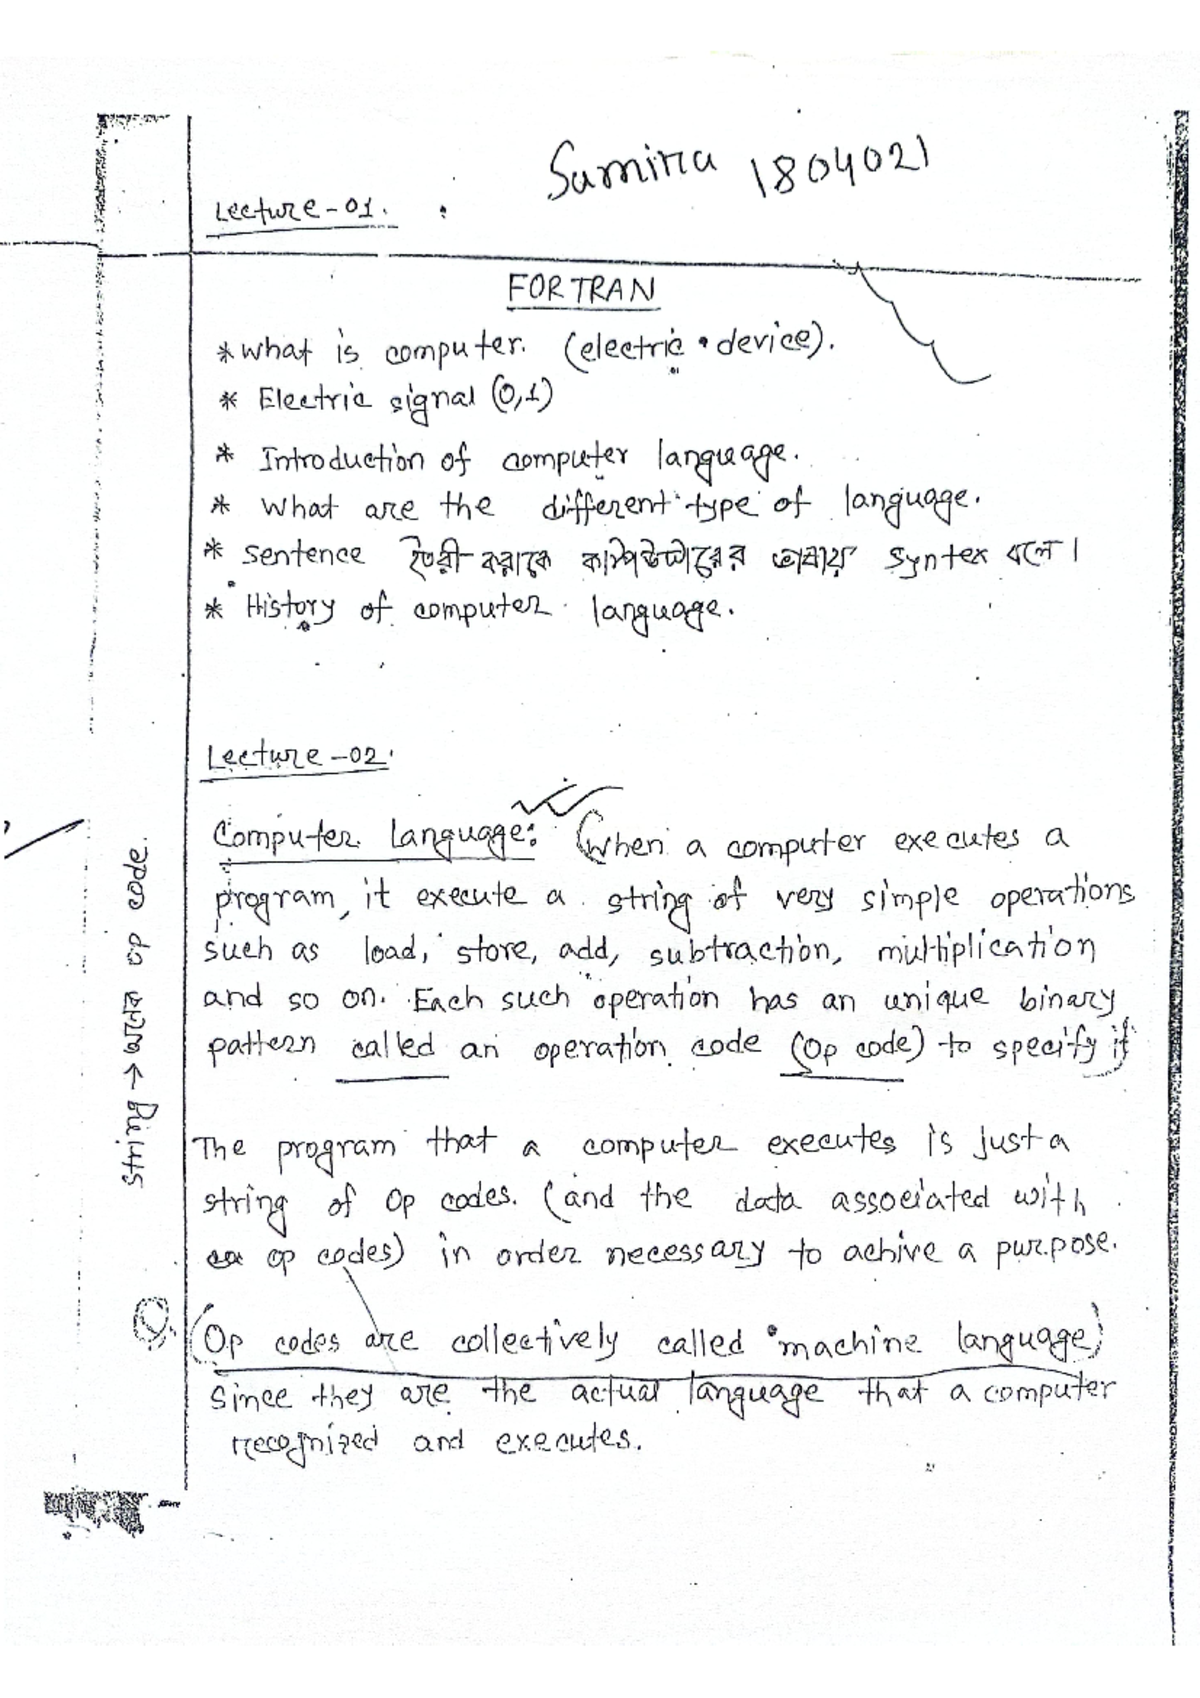 Samira 1804021
Lecture-01.
FORTRAN
* What is computer. (electric device).
* Electric signal (0,1)
* Introduction of computer language.
* What are the different type of language.
* Sentence তৈরী করাকে কম্পিউটারের ভাষায় syntex বলে।
* History of computer language.
Lecture-02.
Computer language: (When a computer executes a
program, it execute a string of very simple operations
such as load, store, add, subtraction, multiplication
and so on. Each such operation has an unique binary
pattern called an operation code (Op code) to specify it)
String → অনেক op code.
The program that a computer executes is just a
string of Op codes. (and the data associated with
op codes) in order necessary to achive a purpose.
(Op codes are collectively called machine language)
Since they are the actual language that a computer
recognized and executes.